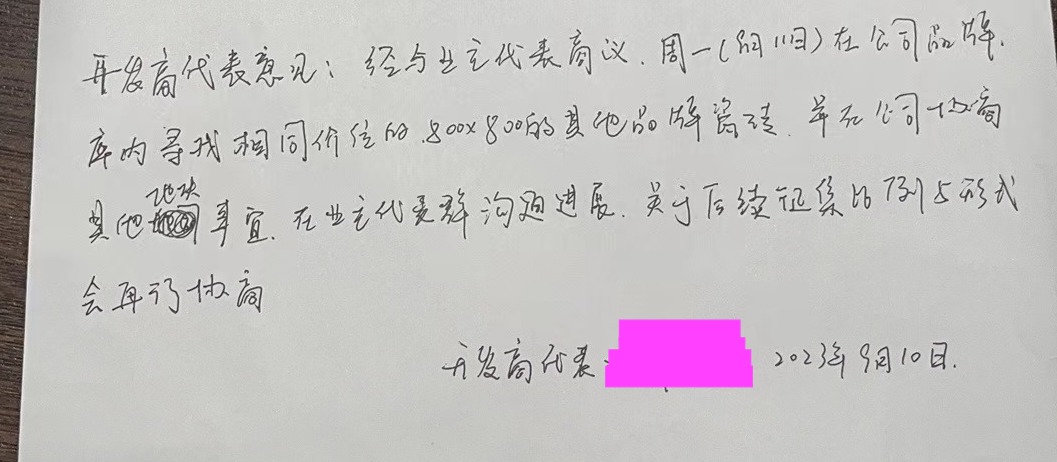 开发商代表意见：经与业主代表商议、周一（9月11日）在公司品牌
库内寻找相同价位的800x800的其他品牌瓷砖、并在公司协商
其他地块事宜、在业主代表群沟通进展、关于后续征集比例与形式
会再行协商
开发商代表 2023年9月10日.